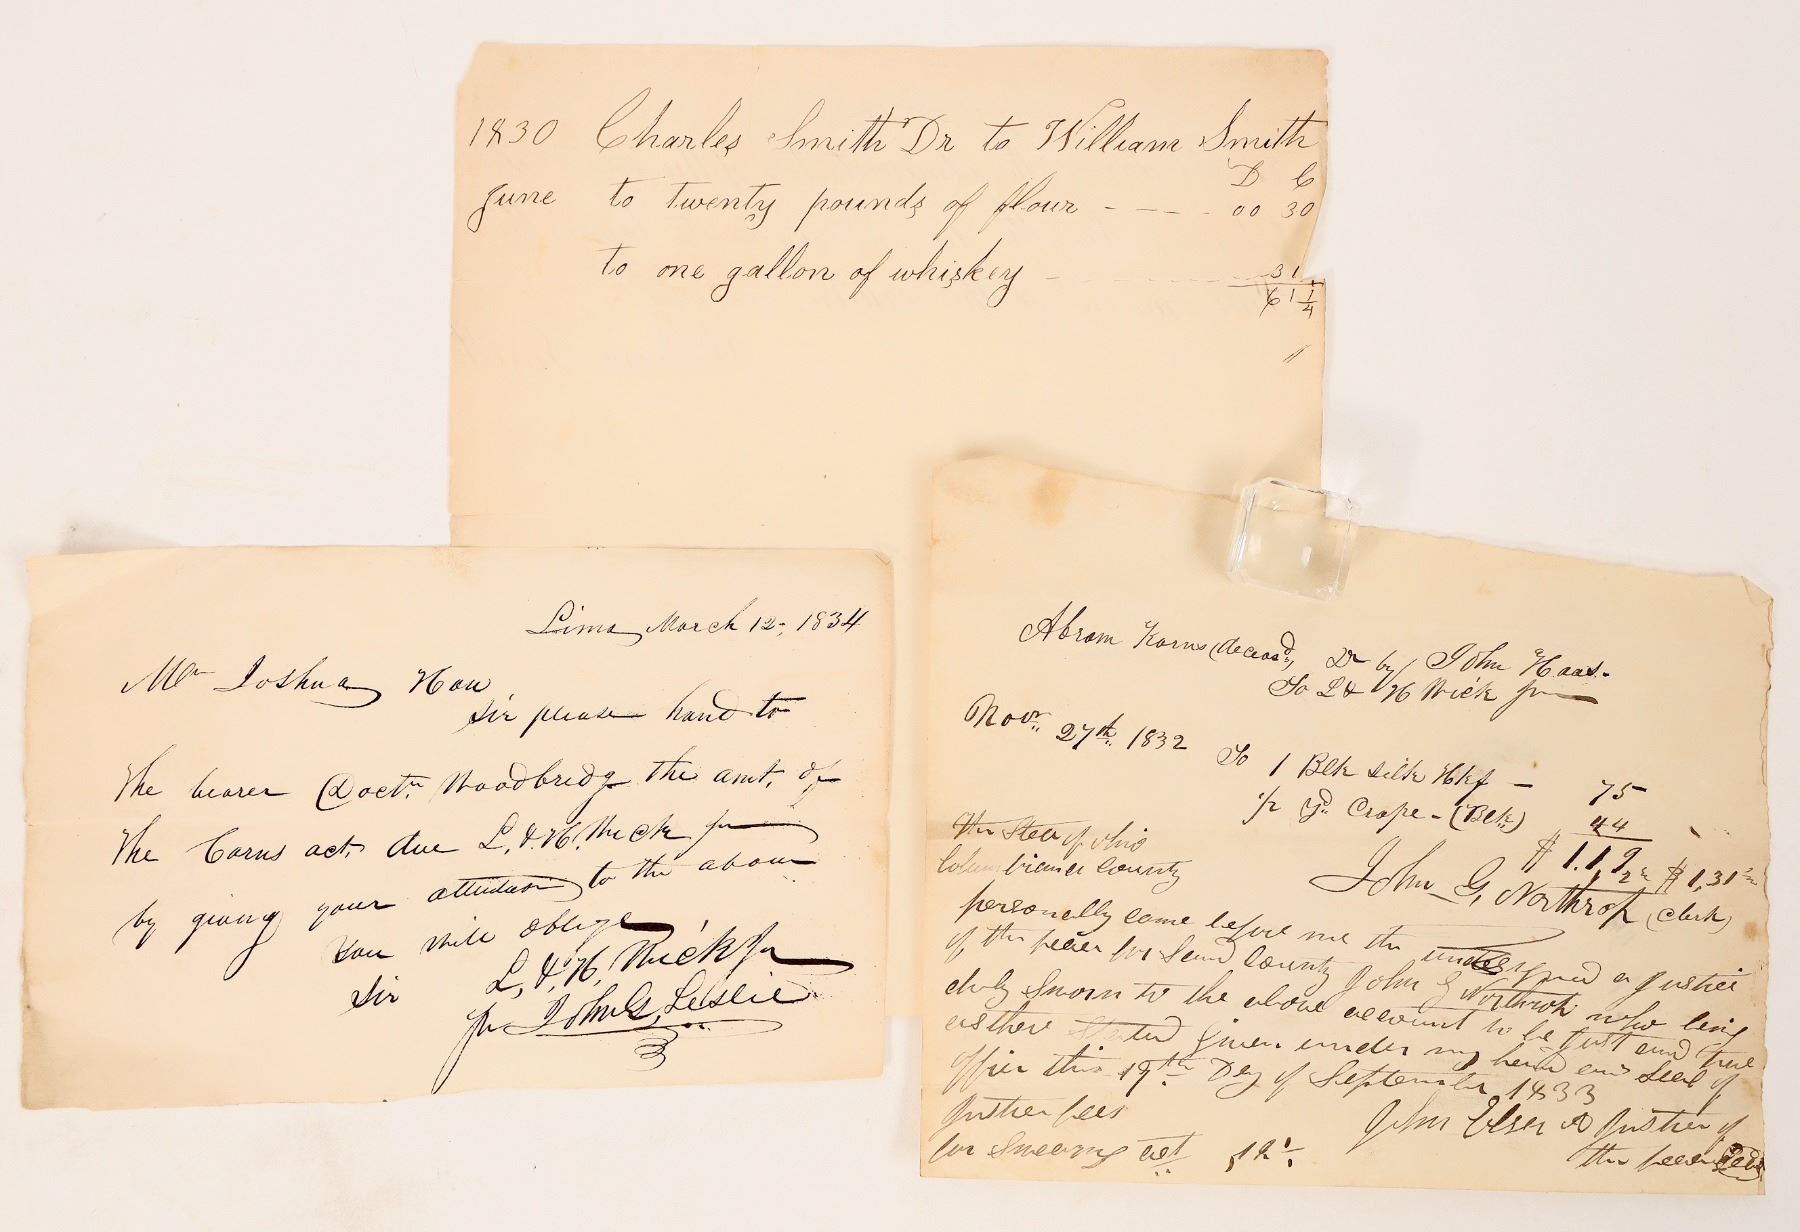 1830 Charles Smith Dr to William Smith
D C
June to twenty pounds of flour - - - - 00 30
to one gallon of whiskey - - - - 31
61 1/4
Lima March 12, 1834
Mr Joshua
Sir please hand to
the bearer Doctr. Woodbridge the amt. of
the Carns act. due L, & H, Wick Jr
by giving your attention to the above
You will oblige
Sir L, & H, Wick Jr
pr John G, Leslie
Abram Karns (deceasd) Dr by John Haas.
To L & H Wick Jr
Novr. 27th. 1832 To 1 Blk silk Hkf - 75
Yd. Crape - (Blk) 44
$ 1.19 $1,31
John G, Northrop (Clerk)
the State of ohio
Columbiana County
personally came before me the undersigned a Justice
of the peace for Said County John G Northrop who being
duly Sworn to the above account to be Just and true
as there Stated Given under my hand and Seal of
office this 19th. Day of September 1833
Justice fees John Elser A Justice of
for Swearing act ,12 the peace Seal